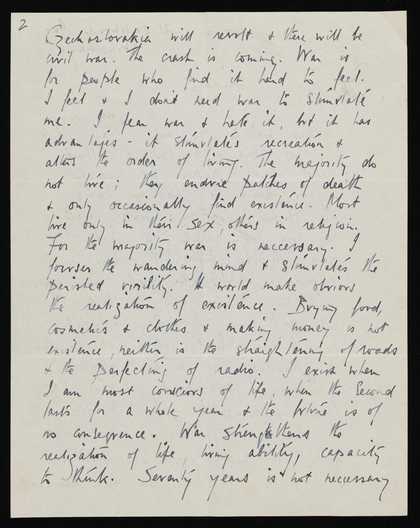 2
Czechoslovakia will revolt & there will be
civil war. The crash is coming. War is
for people who find it hard to feel.
I feel & I don't need war to stimulate
me. I fear war & hate it, but it has
advantages - it stimulates recreation &
alters the order of living. The majority do
not live; they endure patches of death
& only occasionally find existence. Most
live only in their sex, others in religion.
For the majority war is neccessary. I
the wandering mind & stimulates the
virility. It would make obvious
the realization of existence. Buying food,
cosmetics & clothes & making money is not
existence, neither is the straightening of roads
& the perfecting of radio. I exist when
I am most conscious of life, when the second
lasts for a whole year & the future is of
no consequence. War strengthens the
realization of life, living ability, capacity
to think. Seventy years is not neccessary